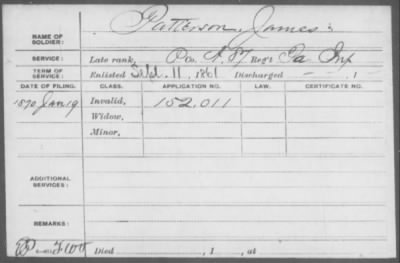 Patterson, James
NAME OF SOLDIER:
SERVICE: Late rank, Co. Reg't Inf
TERM OF SERVICE: Enlisted Sept. 11, 1861 Discharged , 1
DATE OF FILING. CLASS. APPLICATION NO. LAW. CERTIFICATE NO.
1870 Jan 19 Invalid, 152,011
Widow,
Minor,
ADDITIONAL SERVICES:
REMARKS:
Died , 1 , at